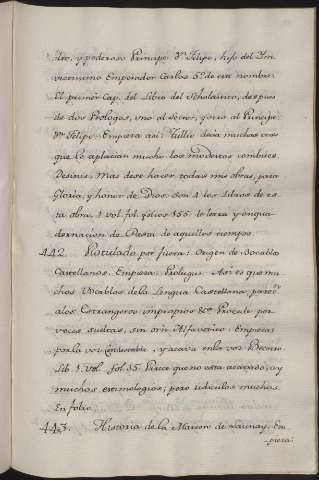 dro, y poderoso Principe Dn Felipe, hijo del In-
victissimo Emperador Carlos 5º de este nombre.
El primer Cap. del Libro del Scholastico, despues
de dos Prologos, uno al Lector, y otro al Principe
Dn Felipe. Empieza asi: Tullio decia muchas veces
que le aplacian mucho los modestos combites.
Desinit. Mas deve hacer todas mis obras, para
Gloria, y honor de Dios. Son 4 los Libros de es-
ta obra. 1 vol. fol. folios 155 de letra y enqua-
dernacion de Pasta de aquellos tiempos.
442. Rotulado por fuera: Origen de Bocablos
Castellanos. Empieza: Prologus. Asi es que mu-
chos Vocablos de la Lengua Castellana parecen
a los Estrangeros impropios &c. Procede por
voces sueltas, sin orn Alfavetico. Empieza
por la voz y acava en la voz
Lib. 1. Vol. fol. 35. Parece que no esta acavado; ay
muchas etimologias; pero ridiculas muchas
En folio.
443. Historia de la Maison de Launay. Em-
pieza: